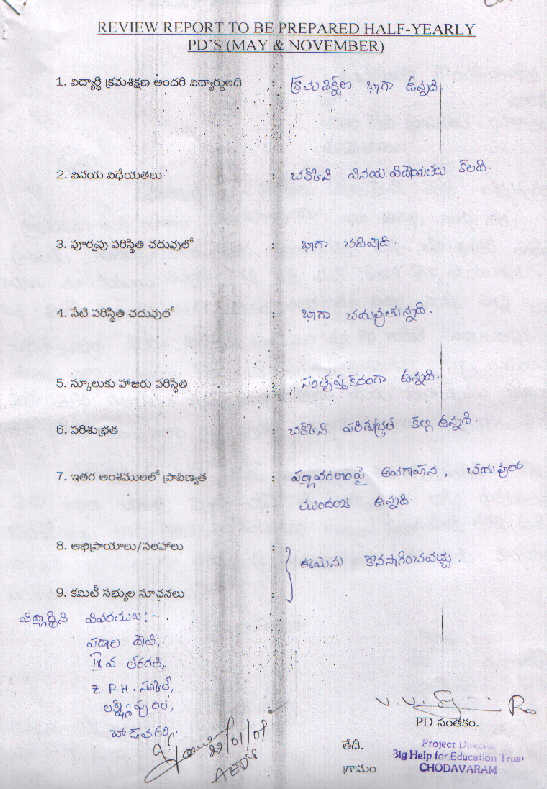 REVIEW REPORT TO BE PREPARED HALF-YEARLY
PD'S (MAY & NOVEMBER)
1. విద్యార్థి క్రమశిక్షణ అందరి విద్యార్థులది : క్రమశిక్షణ బాగా ఉన్నది
2. వినయ విధేయతలు : చక్కని వినయ విధేయతలు కలది.
3. పూర్వపు పరిస్థితి చదువులో : బాగా చదివేది.
4. నేటి పరిస్థితి చదువులో : బాగా చదువుతున్నది.
5. స్కూలుకు హాజరు పరిస్థితి : సంతృప్తికరంగా ఉన్నది.
6. పరిశుభ్రత : చక్కని పరిశుభ్రత కల్గి ఉన్నది.
7. ఇతర అంశములలో ప్రావీణ్యత : పర్యావరణంపై అవగాహన, చదువులో
ముందంజ ఉన్నది
8. అభిప్రాయాలు/సలహాలు :
ఈమెను కొనసాగించవచ్చు.
9. కమిటీ సభ్యుల సూచనలు :
విద్యార్థిని వివరములు:-
పడాల
తరగతి,
Z.P.H. స్కూల్,
లక్ష్మీపురం,
22/01/08
PD సంతకం.
తేది.
Project Director
Big Help for Education Trust
గ్రామం CHODAVARAM